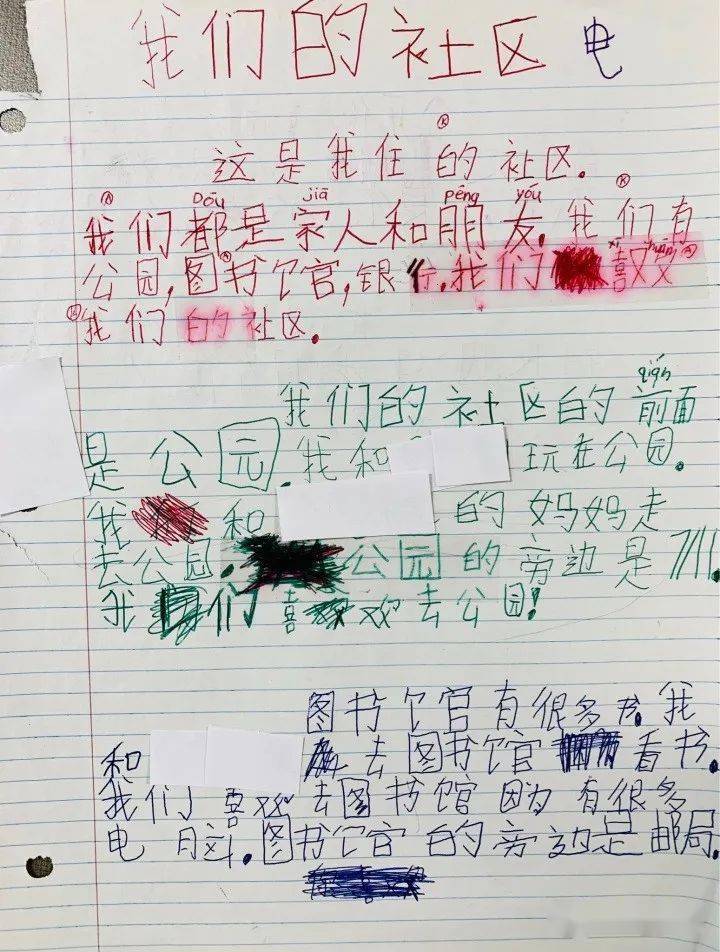 我们的社区 电
这是我住的社区.
Dōu jiā pēng yǒu
我们都是家人和朋友. 我们有
公园,图书馆,银行.我们喜欢
我们的社区.
qián
我们的社区的前面
是公园.我和 玩在公园.
我 和 的妈妈走
去公园. 公园的旁边是711.
我们喜欢去公园!
图书馆有很多书.我
和 去图书馆 看书.
我们喜欢去图书馆因为有很多
电脑.图书馆的旁边是邮局.